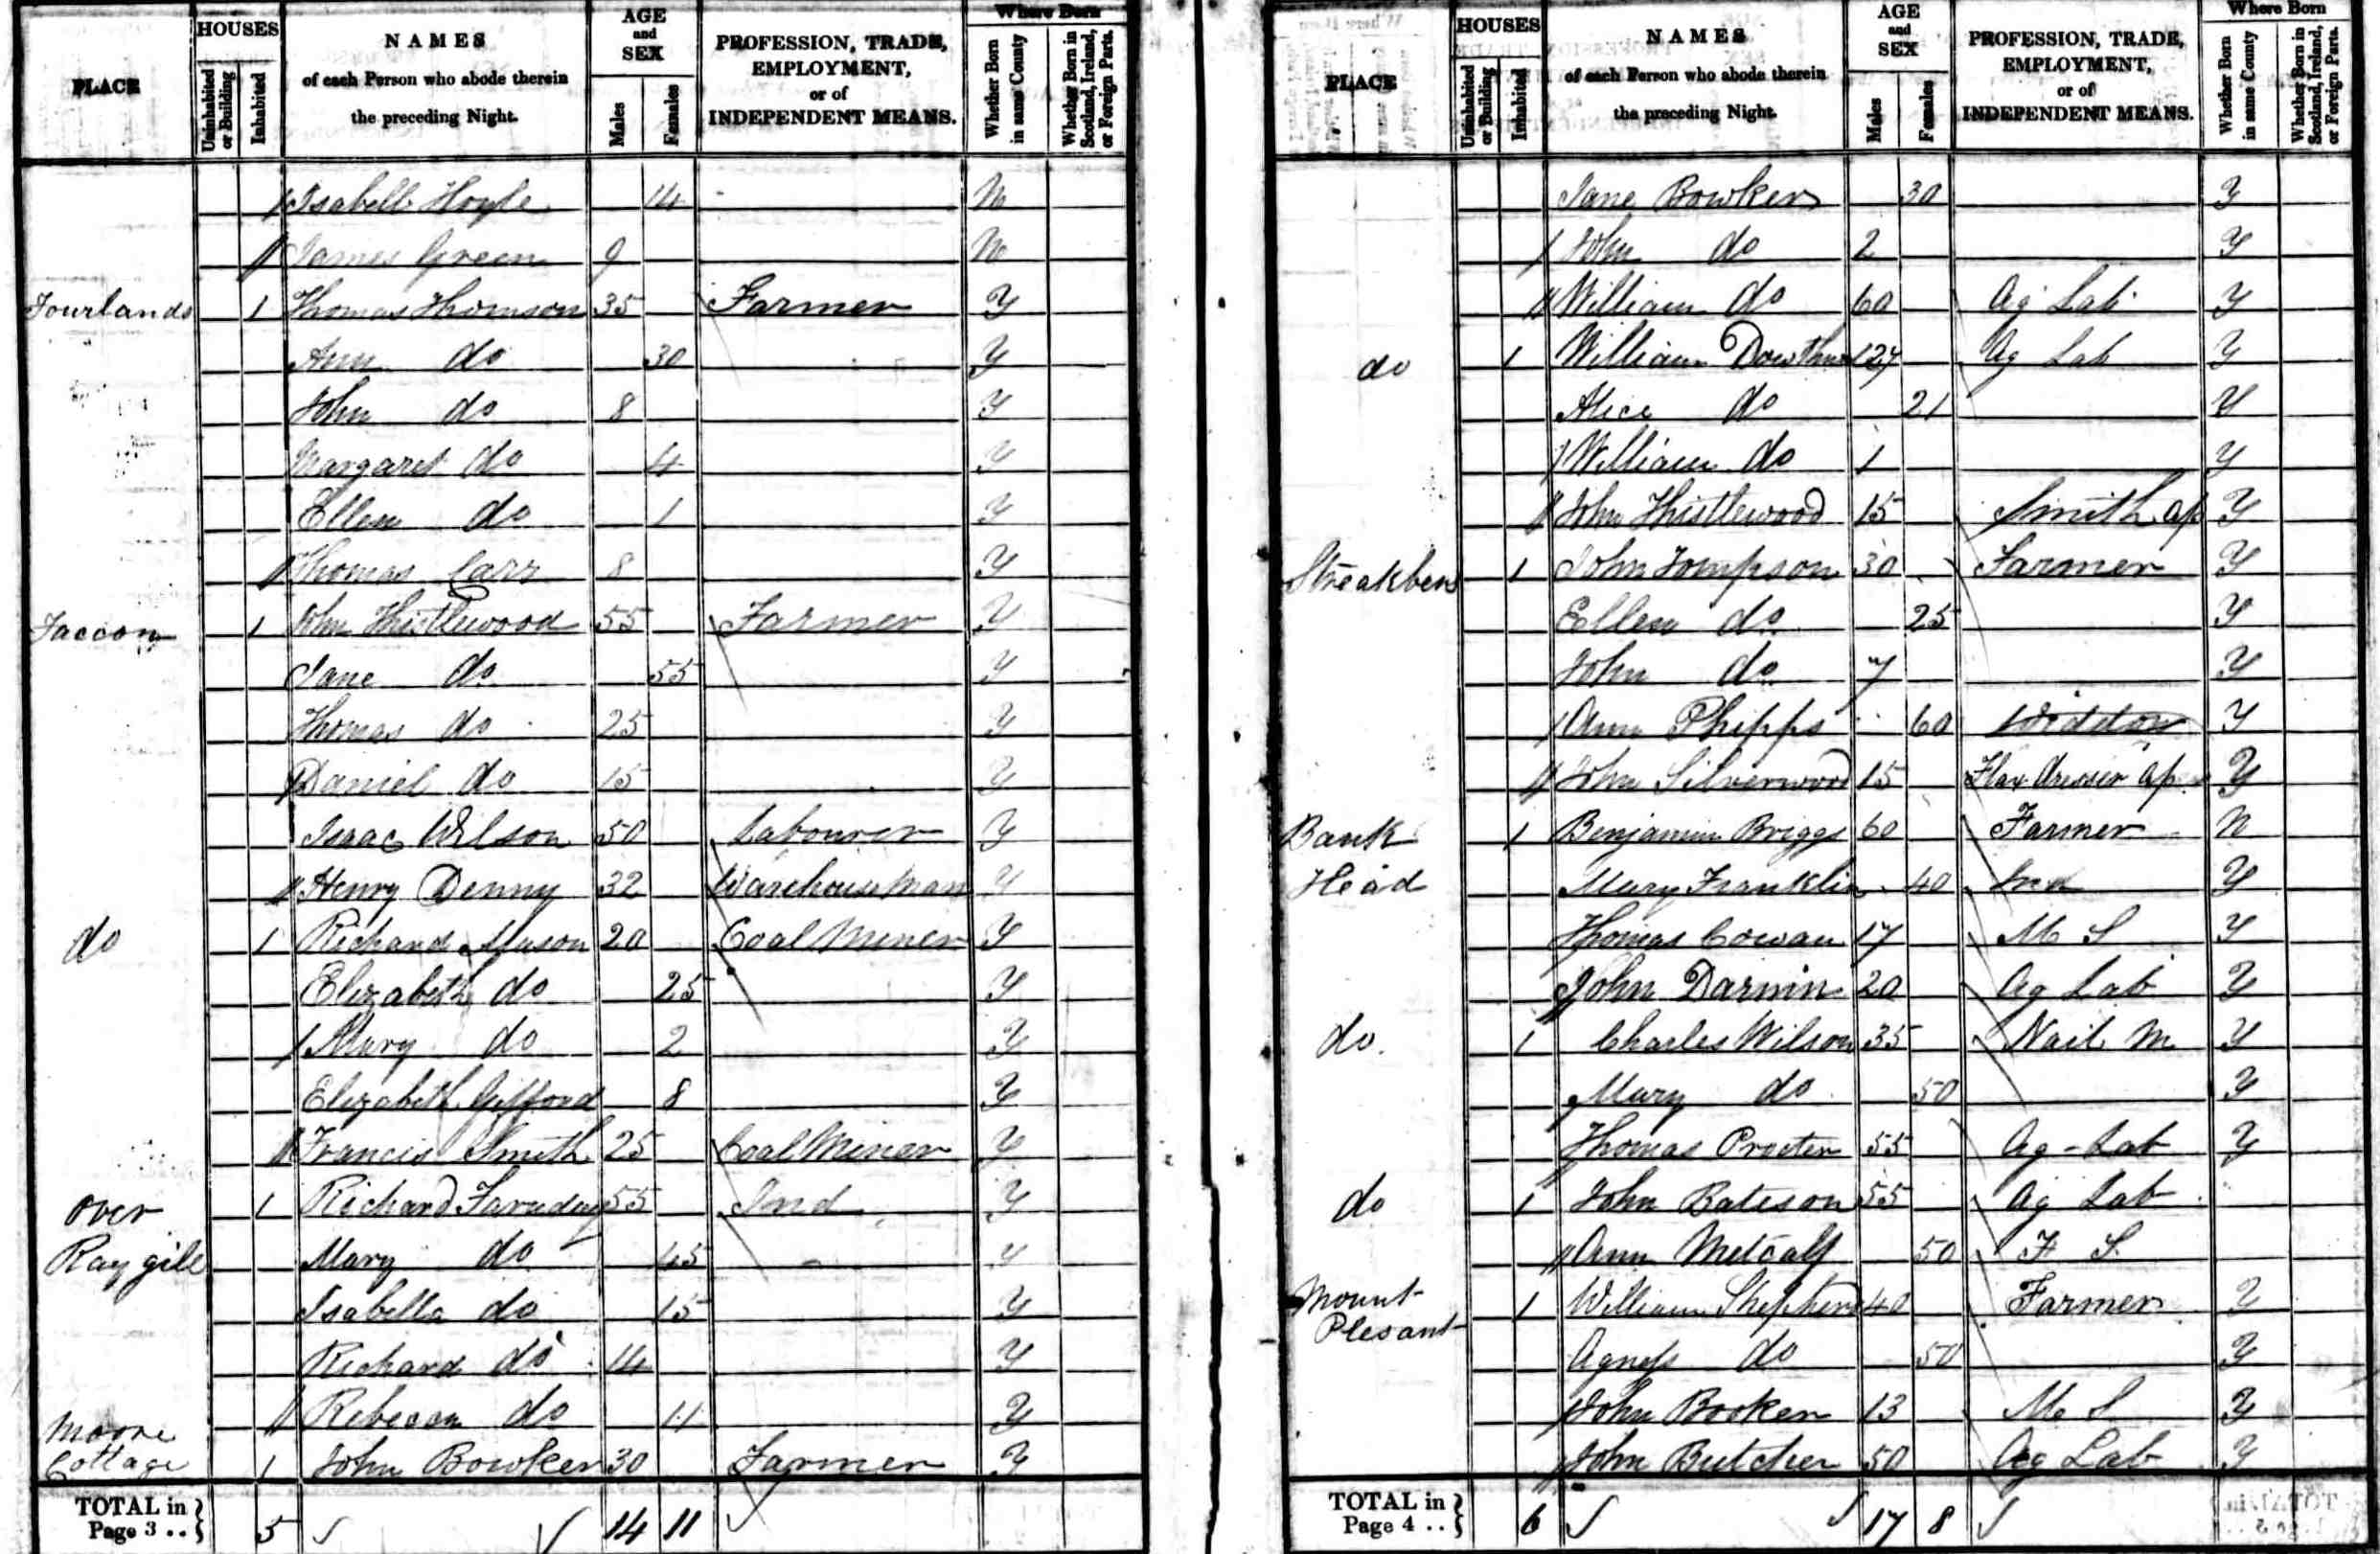 PLACE HOUSES Uninhabited or Building Inhabited NAMES of each Person who abode therein the preceding Night. AGE and SEX Males Females PROFESSION, TRADE, EMPLOYMENT, or of INDEPENDENT MEANS. Where Born Whether Born in same County Whether Born in Scotland, Ireland, or Foreign Parts.
Isabella Hoyle 14 N
James Green 9 N
Fourlands 1 Thomas Thomson 35 Farmer Y
Ann do 30 Y
John do 8 Y
Margaret do 4 Y
Ellen do 1 Y
Thomas Carr 8 Y
Faccon 1 John Thistlewood 55 Farmer Y
Jane do 55 Y
Thomas do 25 Y
Daniel do 15 Y
Isaac Wilson 50 Labourer Y
Henry Denny 32 Warehouse Man Y
do 1 Richard Mason 20 Coal Miner Y
Elizabeth do 25 Y
Mary do 2 Y
Elizabeth Gifford 8 Y
Francis Smith 25 Coal Miner Y
Over 1 Richard Faraday 55 Ind Y
Ray gill Mary do 45 Y
Isabella do 15 Y
Richard do 14 Y
Rebecca do 11 Y
Moore Cottage 1 John Bowker 30 Farmer Y
TOTAL in Page 3 .. 5 14 11
PLACE HOUSES Uninhabited or Building Inhabited NAMES of each Person who abode therein the preceding Night. AGE and SEX Males Females PROFESSION, TRADE, EMPLOYMENT, or of INDEPENDENT MEANS. Where Born Whether Born in same County Whether Born in Scotland, Ireland, or Foreign Parts.
Jane Bowker 30 Y
John do 2 Y
William do 60 Ag Lab Y
do 1 William Ag Lab Y
Alice do 21 Y
William do 1 Y
John Thistlewood 15 Smith ap Y
Streakben 1 John Tompson 30 Farmer Y
Ellen do 25 Y
John do 7 Y
Ann Phipps 60 Y
John Silverwood 15 Flax dresser ap Y
Bank 1 Benjamin Briggs 60 Farmer N
Head Mary Franklin 40 Ind Y
Thomas Cowan 17 M S Y
John Darwin 20 Ag Lab Y
do. 1 Charles Wilson 35 Nail M Y
Mary do 50 Y
Thomas Procter 55 Ag - Lab Y
do 1 John Bateson 55 Ag Lab
Ann Metcalf 50 F S
Mount 1 William Shepherd 40 Farmer Y
Plesant Agness do 50 Y
John Booker 13 M S Y
John Butcher 50 Ag Lab Y
TOTAL in Page 4 .. 6 17 8